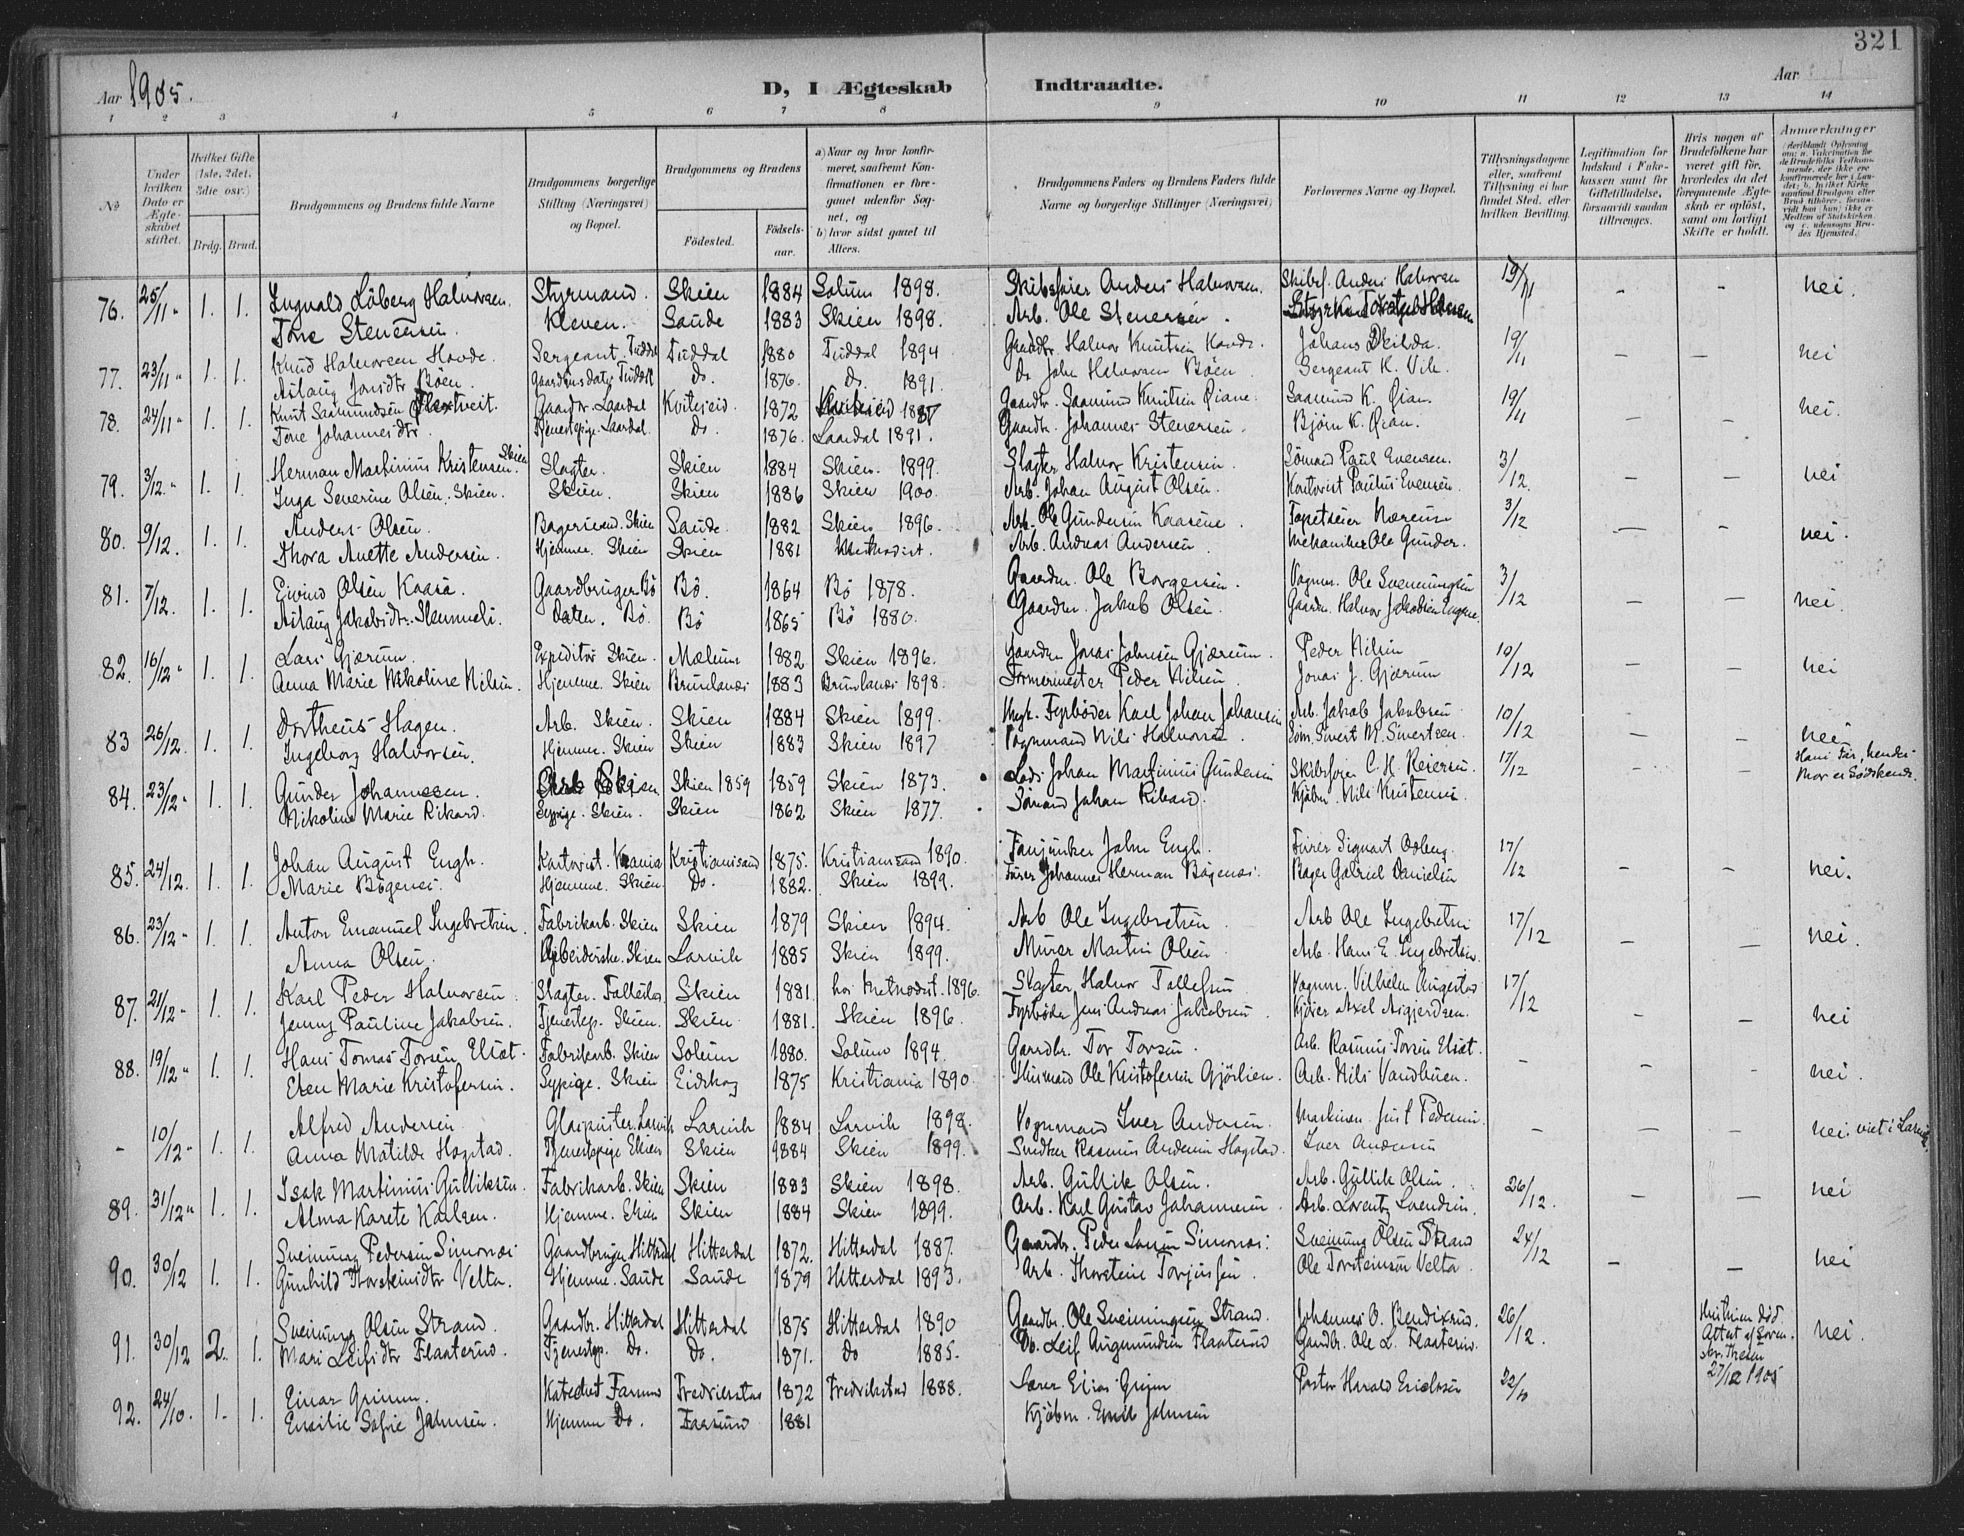 321
Aar 1905.
D, I Ægteskab Indtraadte.
Aar
1 2 3 4 5 6 7 8 9 10 11 12 13 14
No
Under hvilken Dato er Ægteskabet stiftet.
Hvilket Gifte (1ste, 2det, 3die osv.)
Brdg. Brud.
Brudgommens og Brudens fulde Navne
Brudgommens borgerlige Stilling (Næringsvei) og Bopæl.
Brudgommens og Brudens
Födested. Födselsaar.
a) Naar og hvor konfirmeret, saafremt Konfirmationen er foregaaet udenfor Sognet, og
b) hvor sidst gaaet til Alters.
Brudgommens Faders og Brudens Faders fulde Navne og borgerlige Stillinger (Næringsvei)
Forlovernes Navne og Bopæl.
Tillysningsdagene eller, saafremt Tillysning ei har fundet Sted, efter hvilken Bevilling.
Legitimation for Indskud i Enkekassen samt for Giftetilladelse, forsaavidt saadan tiltrænges.
Hvis nogen af Brudefolkene har været gift før, hvorledes da det foregaaende Ægteskab er opløst, samt om lovligt Skifte er holdt.
Anmerkninger
76. 25/11 1. 1. Ingvald Löberg Halvorsen. Styrmand. Skien 1884 Solum 1898. Skibsfører Anders Halvorsen. Skibsf. Anders Halvorsen 19/11 - - nei.
Tone Stenersen. Kleven. Saude 1883 Skien 1898. Arb. Ole Stenersen.
77. 23/11 1. 1. Knud Halvorsen Hovde. Sergeant. Tuddal Tuddal 1880 Tuddal 1894 Gaardbr. Halvor Knutsen Hovde. Johans Deilda. 19/11 - - nei
Aslaug Jonsdtr Böen. Gaardmsdatr Tuddal do. 1876. do. 1891. Do John Halvorsen Böen. Sergeant K. Vik.
78. 24/11 1. 1. Knut Saamundsen Gaardbr. Laardal Kviteseid. 1872 Kviteseid Gaardbr. Saamund Knutsen Öiane. Saamund K. Öian. 19/11 - - nei.
Tone Johannesdtr. Tjenestepige. Laardal. Do. 1876. Laardal 1891. Gaardbr. Johannes Stenersen. Björn K. Öian.
79. 3/12. 1. 1. Herman Martinius Kristensen. Skien Slagter. Skien 1884 Skien. 1899. Slagter Halvor Kristensen. Sömand Paul Evensen. 3/12. - - nei
Inga Severine Olsen. Skien. Skien. Skien 1886 Skien 1900. Arb. Johan August Olsen. Kontorist Paulus Evensen.
80. 9/12. 1. 1. Anders Olsen. Bagersvend. Skien Saude. 1882 Skien 1896. Arb. Ole Gundersen Kaasene. Tapetserer 3/12 - - nei.
Thora Anette Andersen. Hjemme. Skien Skien 1881 Methodist. Arb. Andreas Andersen. Mekaniker Ole Gunder.
81. 7/12. 1. 1. Eivind Olsen Kaasa. Gaardbruger Bö Bö. 1864 Bö 1878. Gaardm. Ole Borgersen. Vognm. Ole Svenningsen 3/12 - - nei.
Aslaug Jakobsdtr. Datter. Bö. Bö 1865 Bö 1880. Gaardm. Jakob Olsen. Gaardm. Halvor Jakobsen
82. 16/12 1. 1. Lars Gjærum. Expeditör Skien. Mælum 1882 Skien 1896. Gaardm Jonas Johnsen Gjærum. Peder Nilsen 10/12 - - nei
Anna Marie Nikoline Nilsen. Hjemme. Skien Brunlanæs 1883 Brunlanæs 1898. Formermester Peder Nilsen. Jonas J. Gjærum
83 26/12. 1. 1. Dortheus Hagen. Arb. Skien. Skien 1884 Skien 1899. Fyrböder Karl Johan Johansen Arb. Jakob Jakobsen 10/12 - - nei
Ingeborg Halvorsen. Hjemme. Skien Skien 1883 Skien 1897 Vognmand Nils Halvorsen. Söm. Sivert M. Sivertsen.
84. 23/12 1. 1. Gunder Johannessen. Arb Skien Skien 1859 1859 Skien 1873. Lods Johan Martinius Gundersen Skibsfører C. H. Reiersen. 17/12 - - Hans Far, hendes Mor er Södskende.
Nikoline Marie Rikard. Sypige. Skien. Skien 1862 Skien 1877. Sömand Johan Rikard. Kjöbm. Nils Kristensen.
85. 24/12. 1. 1. Johan August Engh. Kontorist. Kr.ania Kristiansand 1875. Kristiansand 1890. Fanjunker John Engh. Furer Sigvart 17/12 - - nei.
Marie Bögenæs. Hjemme. Skien Do. 1882. Skien 1899. Furer Johannes Herman Bögenæs. Bager Gabriel Danielsen
86. 23/12 1. 1. Anton Emanuel Ingebretsen. Fabrikarb. Skien Skien 1879 Skien 1894. Arb Ole Ingebretsen. Arb Ole Ingebretsen 17/12 - - nei.
Anna Olsen. Arbeiderske. Skien Larvik 1885 Skien 1899. Murer Martin Olsen Arb. Hans E. Ingebretsen.
87. 21/12 1. 1. Karl Peder Halvorsen. Slagter. Skien 1881. hos Methodist. 1896. Slagter Halvor Tollefsen Vognm. Vilhelm 17/12 - - nei
Jenny Pauline Jakobsen. Tjenestep. Skien. Skien. 1881. Skien 1896. Fyrböder Jens Andreas Jakobsen. Axel
88. 19/12 1. 1. Hans Tomas Torsen Elset. Fabrikarb. Skien Solum 1880. Solum 1894. Gaardbr. Tor Torsen. Arb. Rasmus Torsen Elset. - - - nei.
Elen Marie Kristofersen. Sypige. Skien Eidskog 1875 Kristiania 1890. Husmand Ole Kristofersen Gjörlien. Arb. Nils
- 10/12 1. 1. Alfred Andersen Glaspuster. Larvik Larvik 1884 Larvik 1898. Vognmand Iver Andersen. Pedersen - - - nei. viet i Larvik.
Anna Matilde Hogstad. Tjenestepige Skien Skien 1884 Skien 1899. Snedker Rasmus Andersen Hogstad. Iver Andersen
89. 31/12 1. 1. Isak Martinius Gulliksen. Fabrikarb. Skien Skien 1883 Skien 1898. Arb. Gullik Olsen. Arb. Gullik Olsen. 26/12. - - nei
Alma Karete Karlsen. Hjemme. Skien Skien 1884 Skien 1899. Arb. Karl Gustav Johannesen. Arb. Lorentz Svendsen.
90. 30/12 1. 1. Sveinung Pedersen Simonæs Gaardbruger Hitterdal Hitterdal 1872. Hitterdal 1887. Gaardbr. Peder Larsen Simonæs. Sveinung Olsen Strand 24/12 - - nei
Gunhild Thorsteinsdtr Velta. Hjemme. Saude Saude 1879 Hitterdal 1893. Arb. Thorstein Torjusen. Ole Torsteinsen Velta.
91. 30/12 2. 1. Sveinung Olsen Strand. Gaardbr. Hitterdal Hitterdal 1875 Hitterdal 1890 Gaardbr. Ole Sveinungsen Strand. Johannes O. Bendixsen. 26/12. Hustruen död. Attest af Soren skr. 27/12 1905 nei.
Mari Leifsdtr Flaaterud. Tjenestep. Do. Do. 1871. Do 1885. Do. Leif Augmundsen Flaaterud Gaardbr. Ole L. Flaaterud.
92. 24/10. 1. 1. Einar Grimm. Katechet Farsund Fredrikstad 1872 Fredrikstad 1888. Lærer Elias Grimm Pastor Harald Erichsen 22/10
Emilie Sofie Johnsen. Hjemme Do. Farsund 1881 Kjöbm. Emil Johnsen